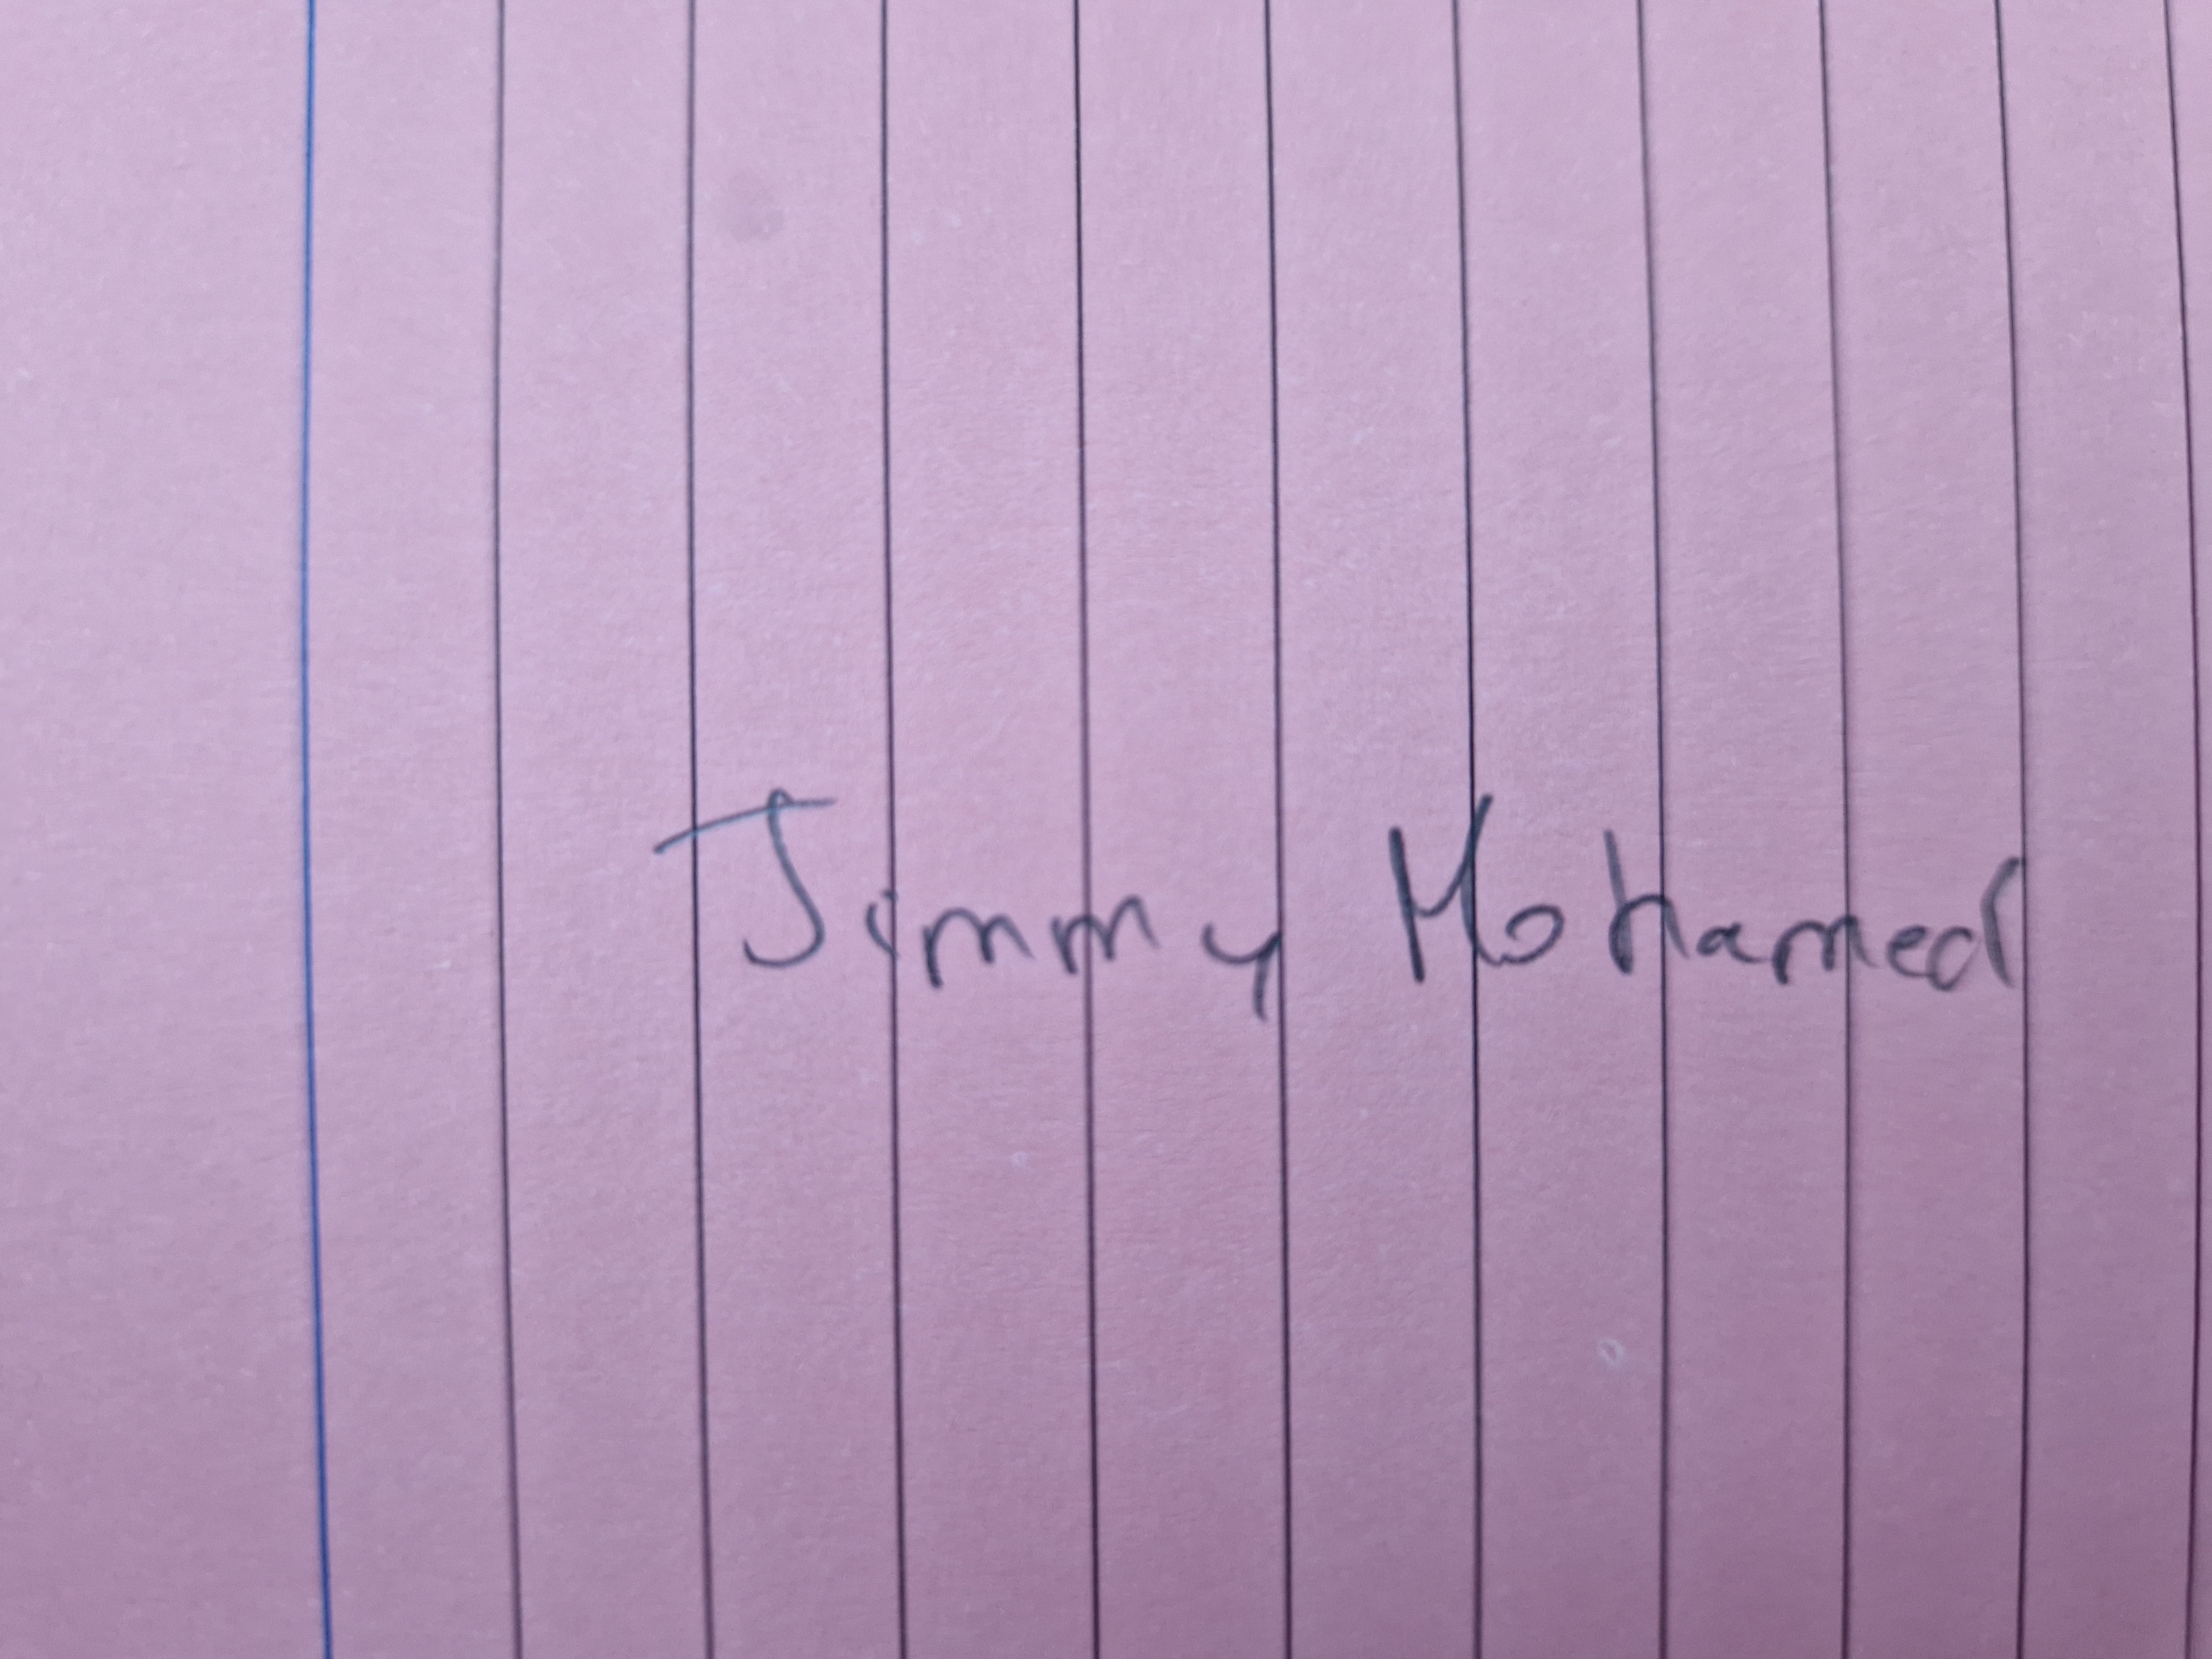 Jimmy Mohamed